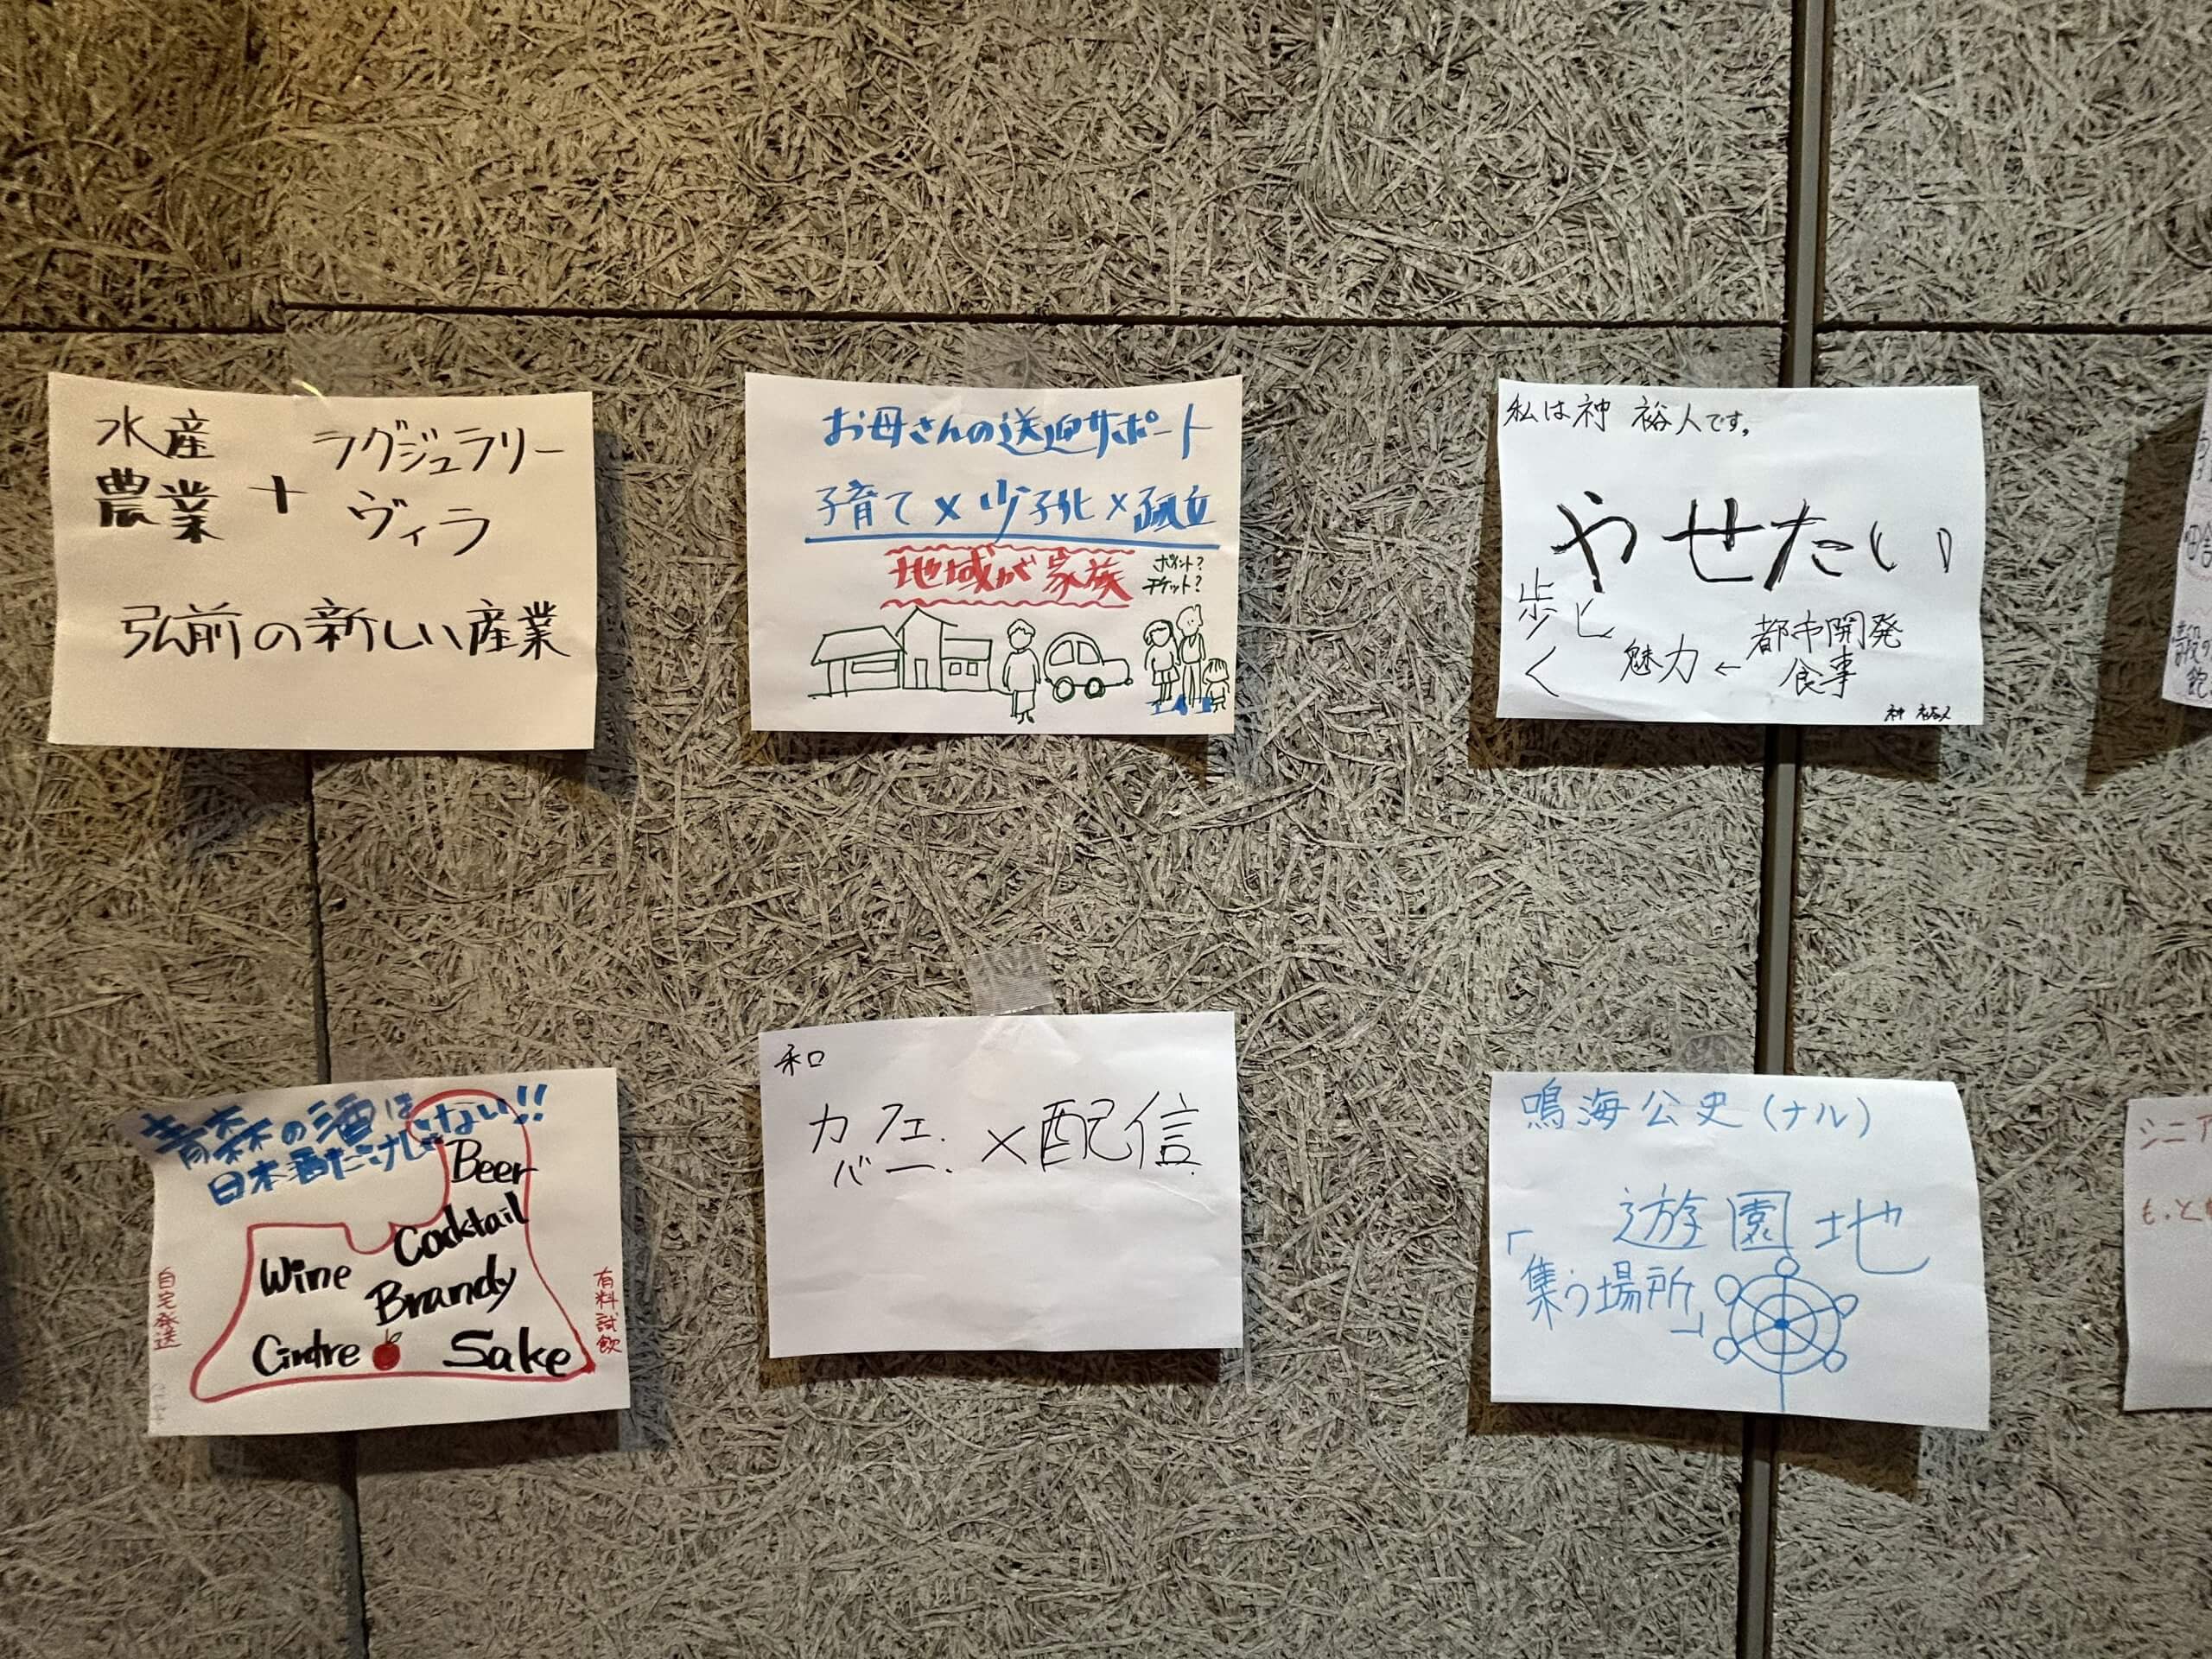 水産
農業
+
ラグジュラリー
ヴィラ
弘前の新しい産業
お母さんの送迎サポート
子育て×少子化×孤立
地域が家族
ポイント?
チケット?
私は神 裕人です。
やせたい
歩く
魅力←都市開発
食事
神 裕人
青森の酒は
日本酒だけじゃない!!
Beer
Cocktail
Wine
Brandy
Cidre
Sake
自宅発送
有料試飲
カフェ.
バー.
×配信
鳴海公史(ナル)
遊園地
「集う場所」
シニア
もっと